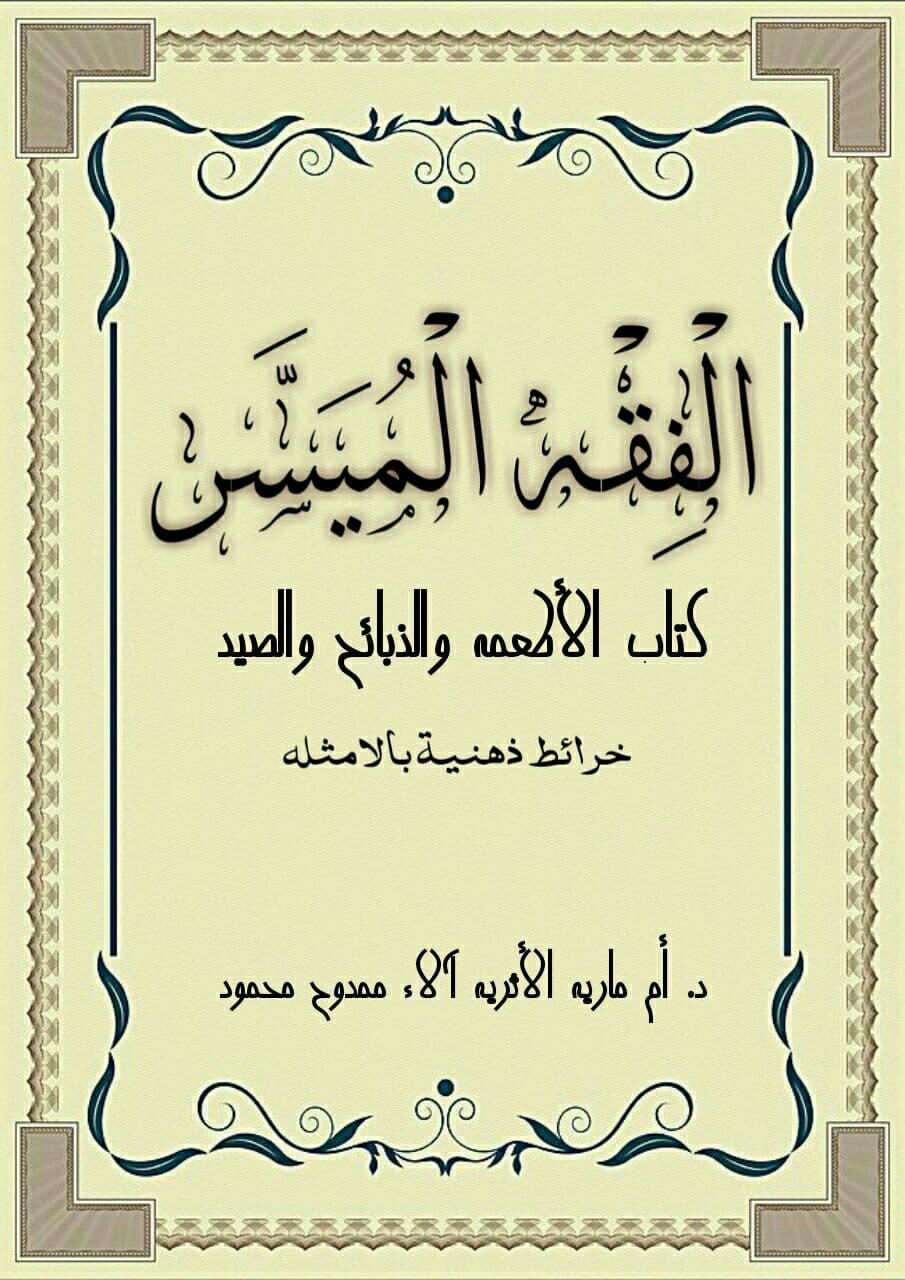 الْفِقْهُ الْمُيَسَّر
كتاب الأطعمه والذبائح والصيد
خرائط ذهنية بالامثله
د. أم ماريه الأثريه آلاء ممدوح محمود